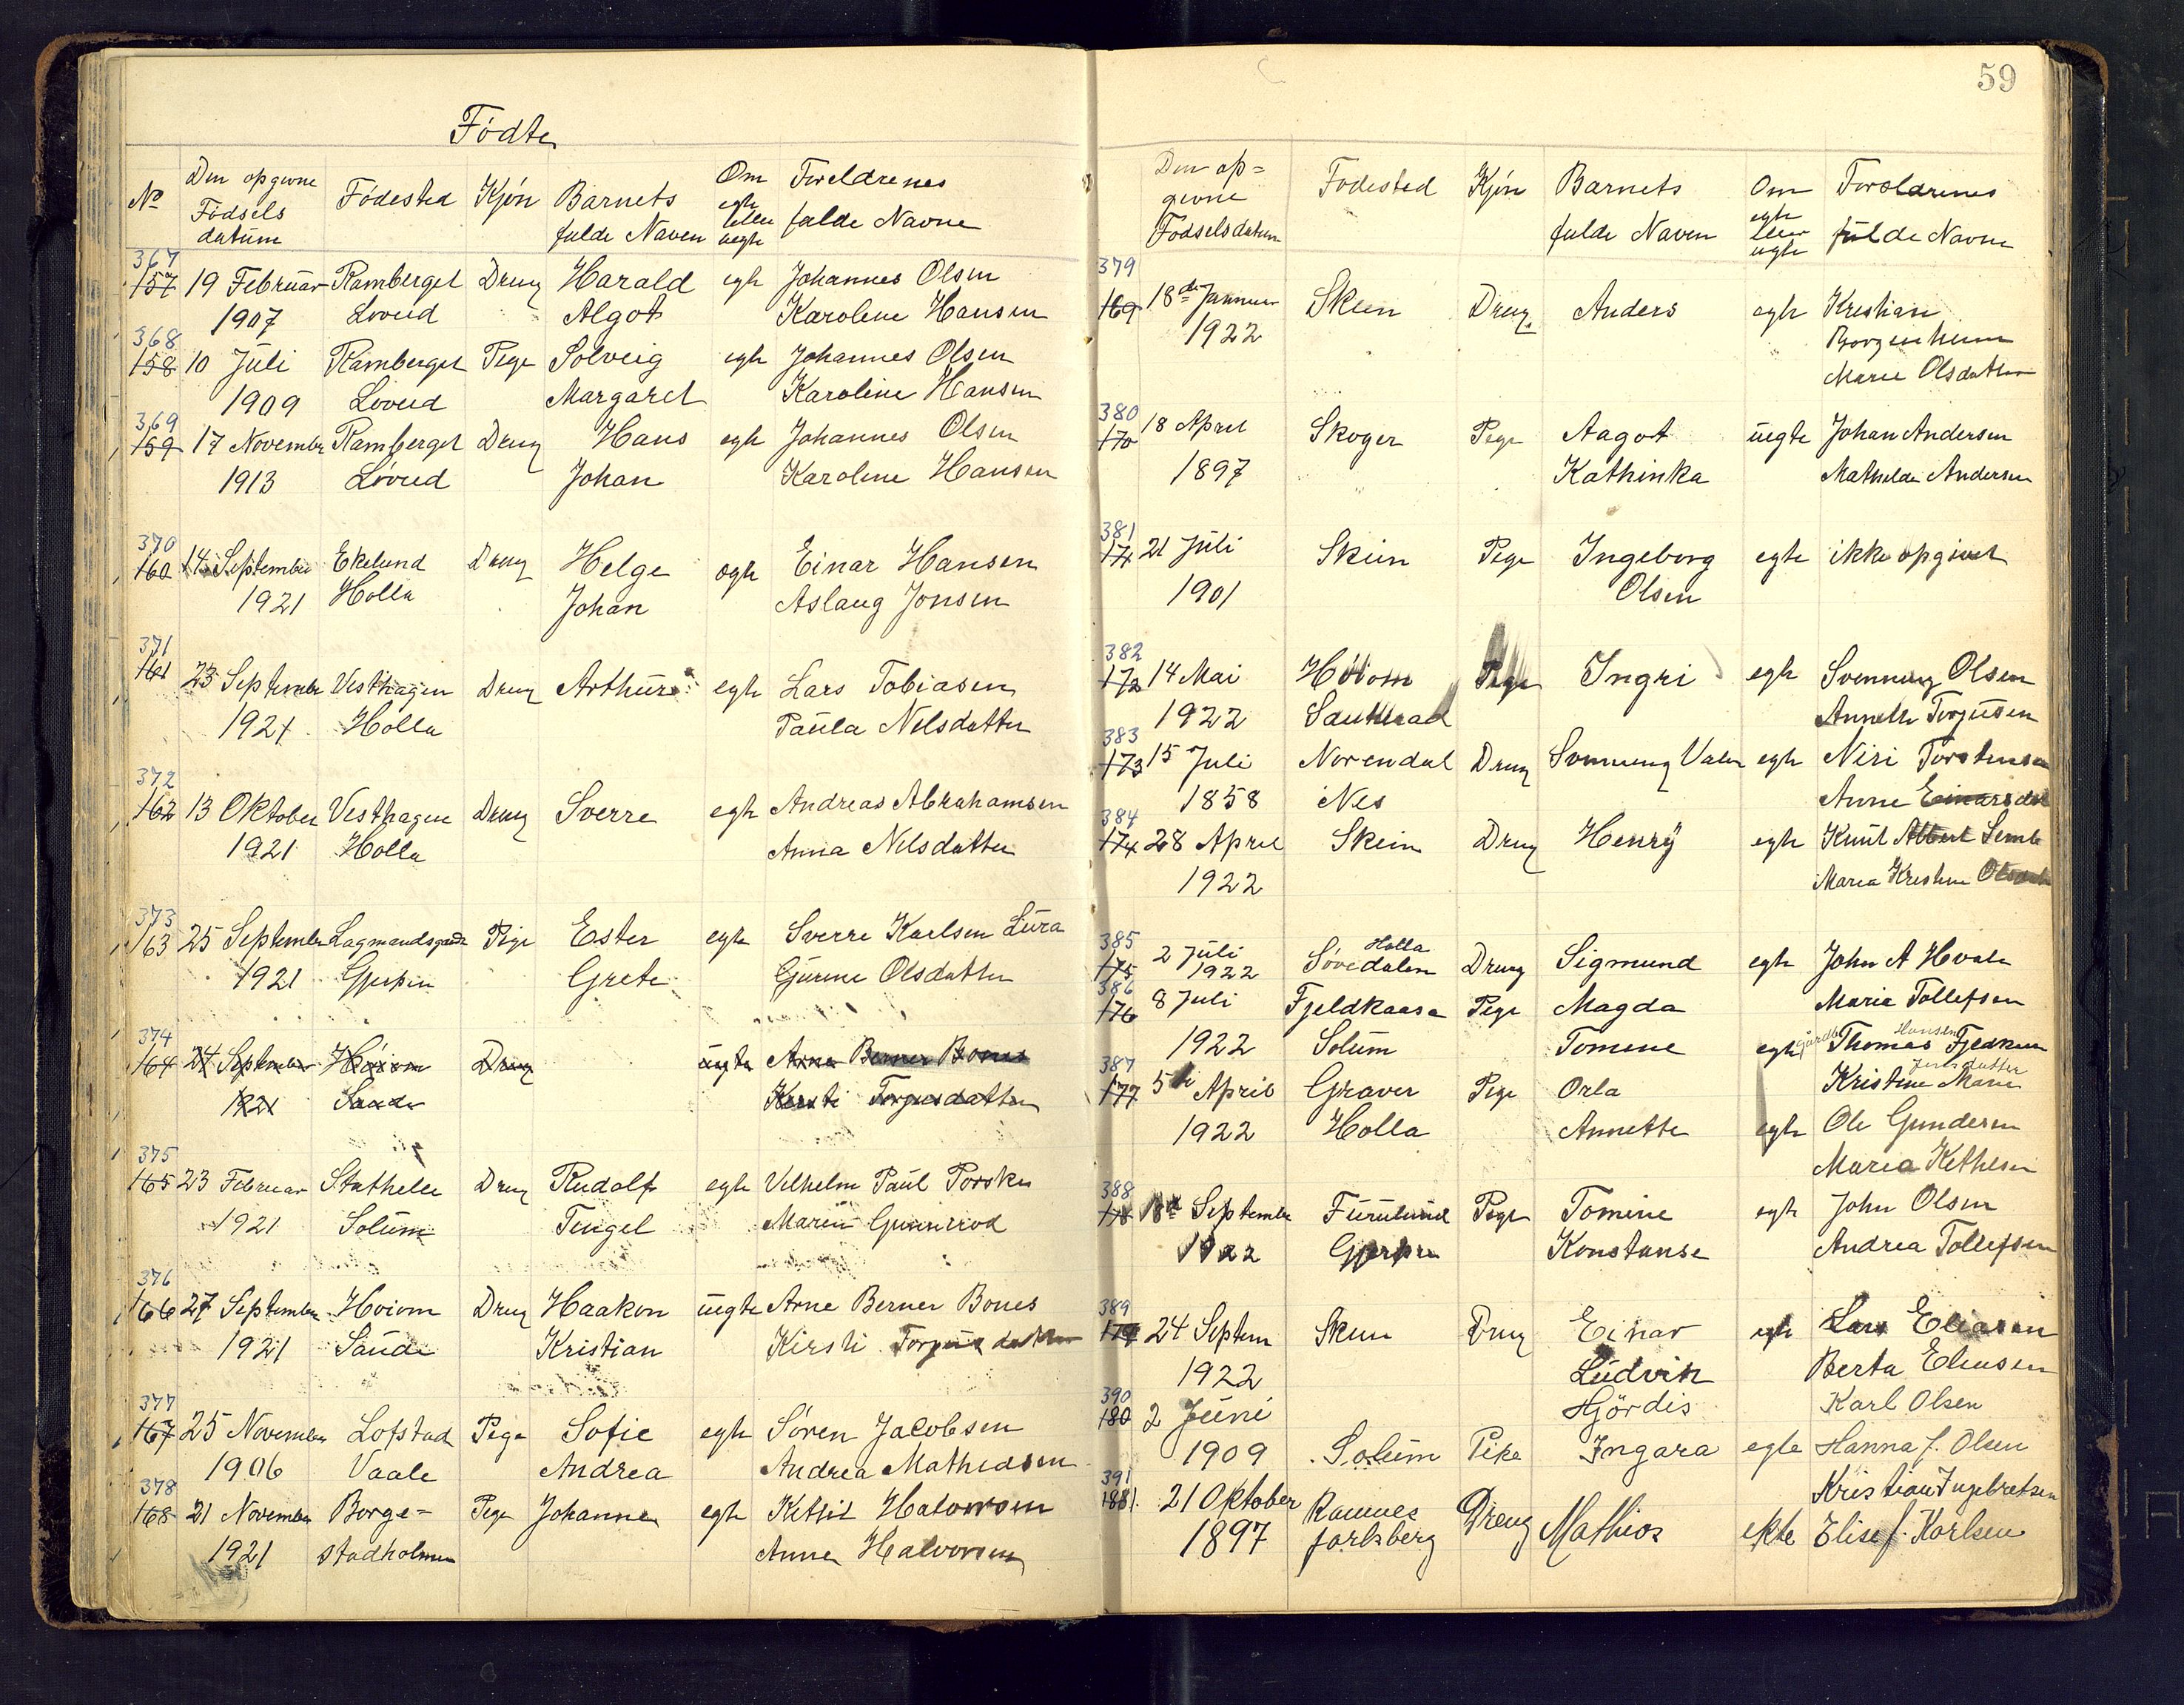 Fødte
No
Den opgivne Fødsels datum
Fødested
Kjøn
Barnets fulde Naven
Om egte eller uegte
Foreldrenes fulde Navne
367
157 19 Februar Ramberget Dreng Harald egte Johannes Olsen
1907 Lovud Algot Karoline Hansen
368
158 10 Juli Ramberget Pige Solveig egte Johannes Olsen
1909 Lovud Margaret Karoline Hansen
369
159 17 November Ramberget Dreng Hans egte Johannes Olsen
1913 Løvud Johan Karoline Hansen
370
160 14 September Ekelund Dreng Helge egte Einar Hansen
1921 Holla Johan Aslaug Jonsen
371
161 23 September Vesthagen Dreng Arthur egte Lars Tobiasen
1921 Holla Paula Nilsdatter
372
162 13 Oktober Vesthagen Dreng Sverre egte Andreas Abrahamsen
1921 Holla Anna Nilsdatter
373
163 25 September Lagmandsgaarde Pige Ester egte Sverre Karlsen Lura
1921 Gjerpen Grete Gurine Olsdatter
374
164 27 September Høiom Dreng uegte Arne Berner Bones
1921 Saude Kirsti Torgusdatter
375
165 23 Februar Stathelle Dreng Rudolf egte Vilhelm Paul Porsker
1921 Solum Tengel Maren Gunnrod
376
166 27 September Hoiom Dreng Haakon uegte Arne Berner Bones
1921 Saude Kristian Kirsti Torgusdatter
377
167 25 November Lofstad Pige Sofie egte Søren Jacobsen
1906 Vaale Andrea Andrea Mathedsen
378
168 21 November Borge- Pige Johanne egte Kettil Halvorsen
1921 stadholmen Anne Halvorsen
59
Den op=givne Fødselsdatum
Fødested
Kjøn
Barnets fulde Naven
Om egte eller uegte
Foreldrenes fulde Navne
379
169 18de Januar Skien Dreng Anders egte Kristian
1922 Borgenheim
Marie Olsdatter
380
170 18 April Skoger Pige Aagot uegte Johan Andersen
1897 Kathinka Mathilde Andersen
381
171 21 Juli Skien Pige Ingeborg egte ikke opgivet
1901 Olsen
382
172 14 Mai Høiom Pige Ingri egte Svennung Olsen
1922 Sauherad Annette Torjusen
383
173 15 Juli Norendal Dreng Svennung Valen egte Niri Torstensen
1858 Nes Anne Einarsdat
384
174 28 April Skien Dreng Henry egte Knut Albert Semb
1922 Maria Kristine
385 Holla
175 2 Juli 1922 Søvedalen Dreng Sigmund egte John A Hvale
386
176 8 Juli Fjeldkaasa Pige Magda Marie Tollefsen
Hansen
1922 Solum Tomene egte Thomas Fjedkaas
387 Jensdatter
177 5te April Graver Pige Orla Kristine Marie
1922 Holla Annette egte Ole Gundersen
Maria Kethlsen
388
178 18de September Furulund Pige Tomine egte John Olsen
1922 Gjerpen Konstanse Andrea Tollefsen
389
179 24 Septem Skien Dreng Einar egte Lars Eliasen
1922 Ludvik Berta Eliasen
390
180 2 Juni Hjördis Karl Olsen
1909 Solum Pike Ingara egte Hanna f. Olsen
391
181 21 Oktober Ramnes Dreng Mathias ekte Kristian Ingebretsen
1897 Jarlsberg Elise f. Karlsen